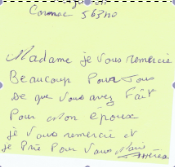 Carnac 56340
Madame je vous remercie
Beaucoup Pour Tous
De que vous avez Fait
Pour Mon epoux
Je vous remercie et
je Prie Pour Vous